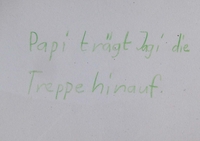 Papi trägt Jagi die
Treppe hinauf.